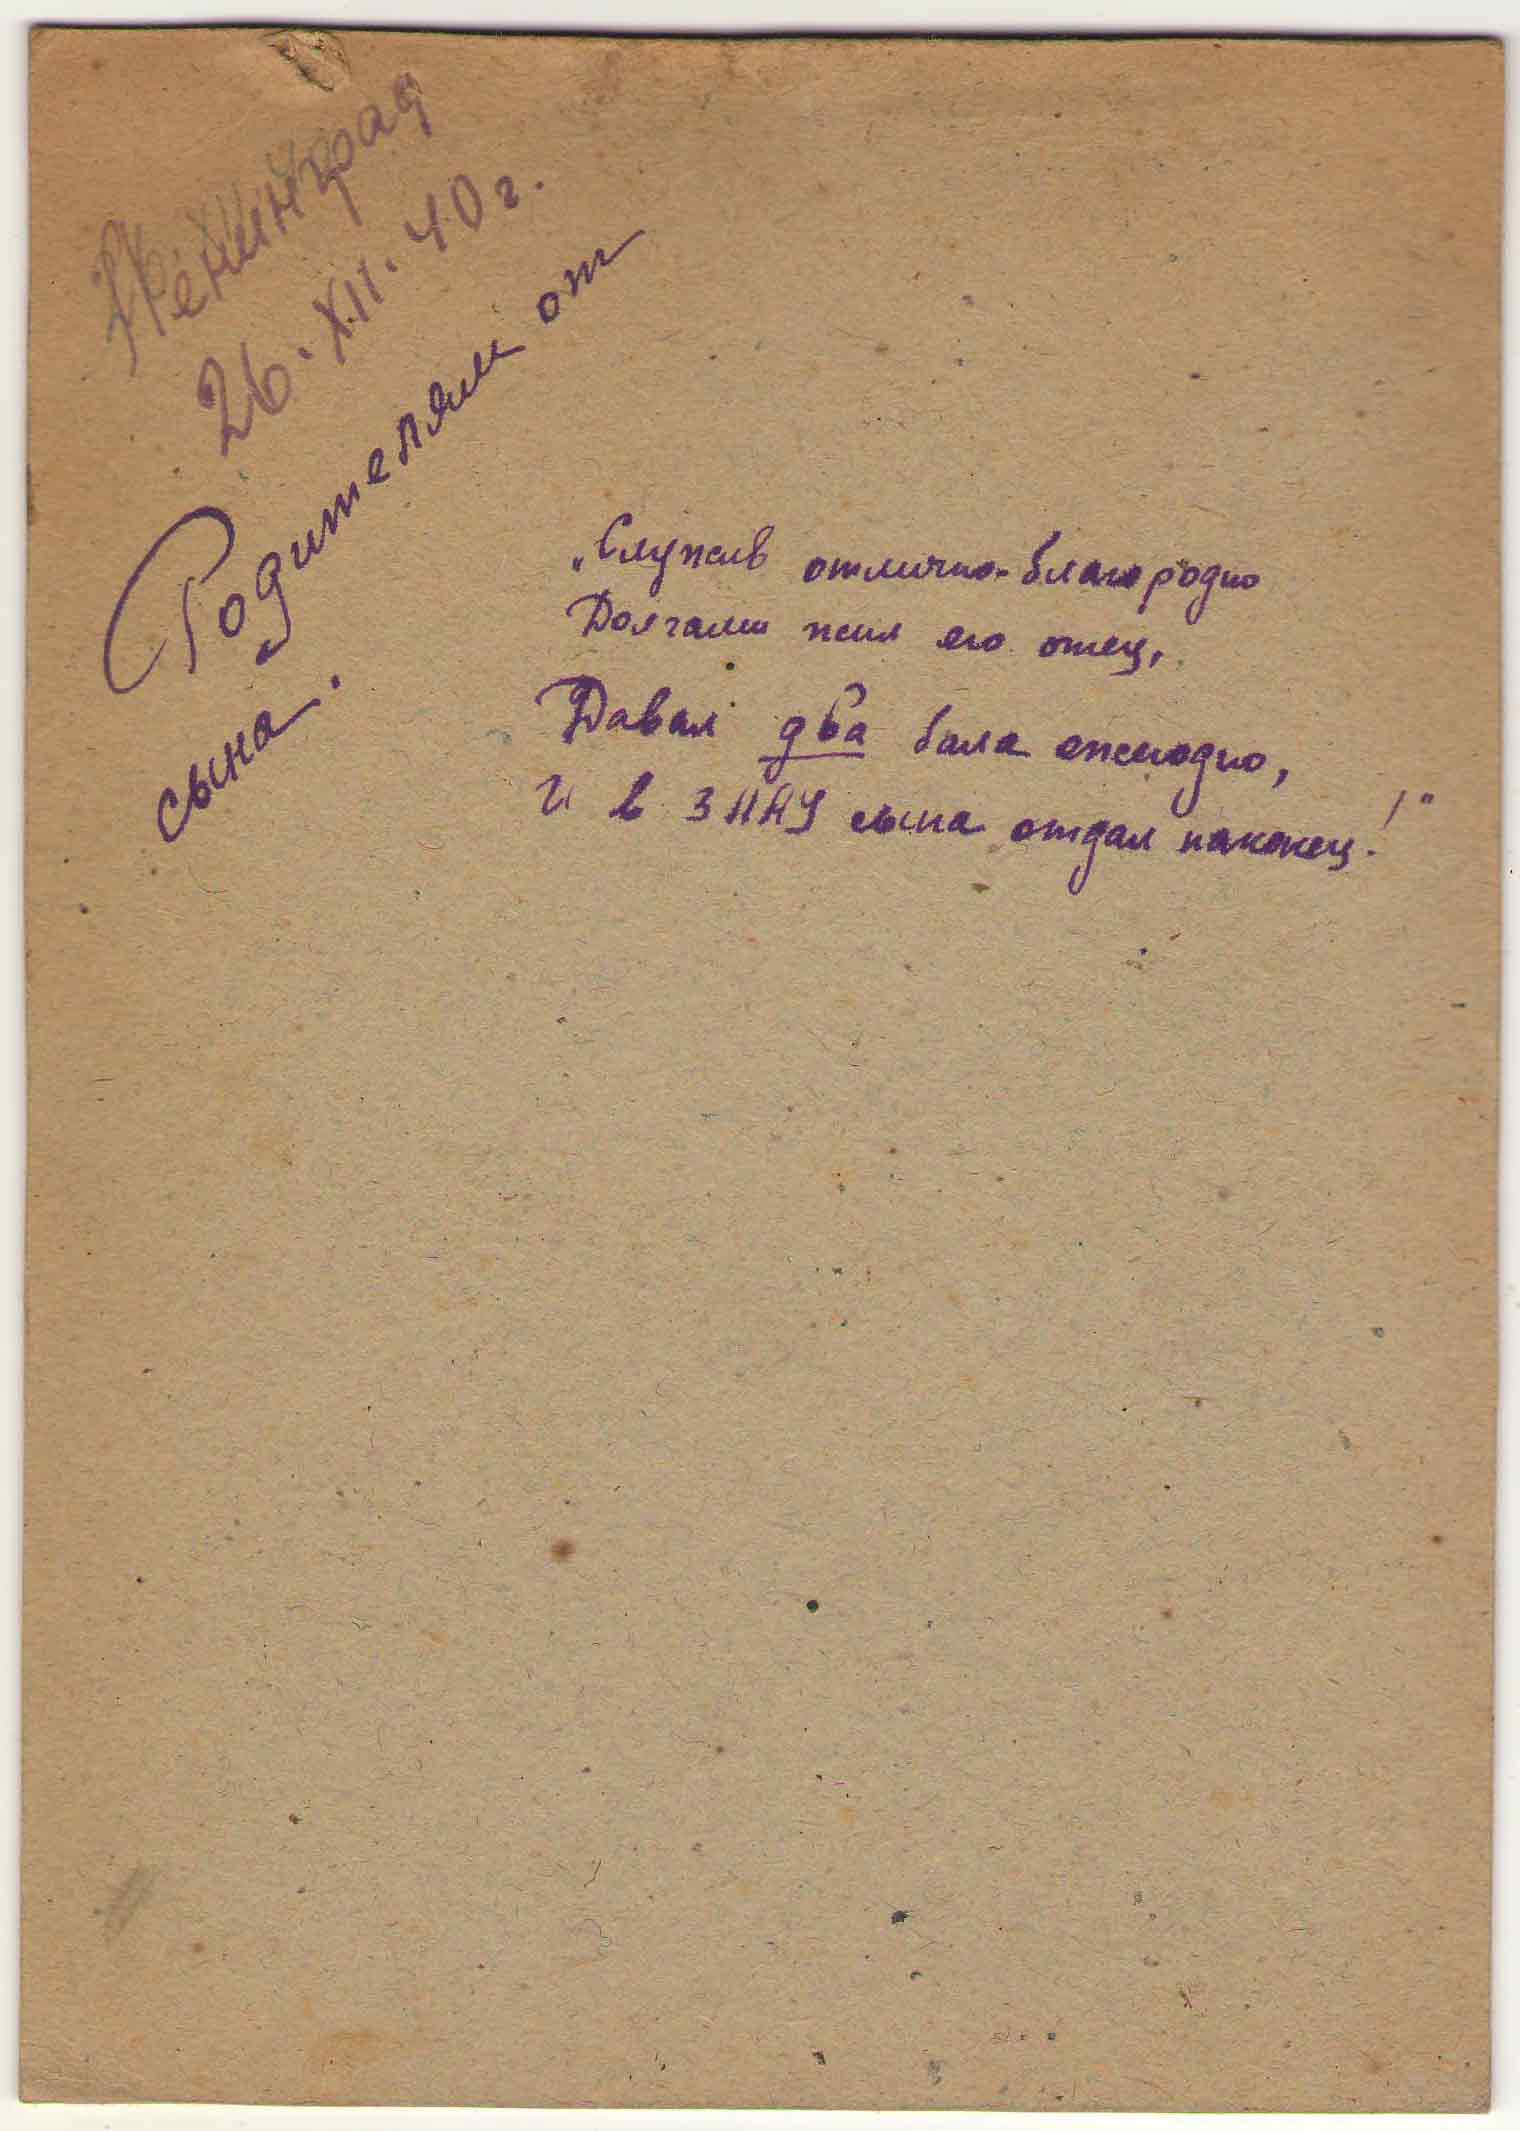 Ленинград
26.XII.40 г.
Родителям от
сына.
„Служив отлично-благородно
Долгами жил его отец,
Давал два бала ежегодно,
И в ЗНАУ сына отдал наконец!"